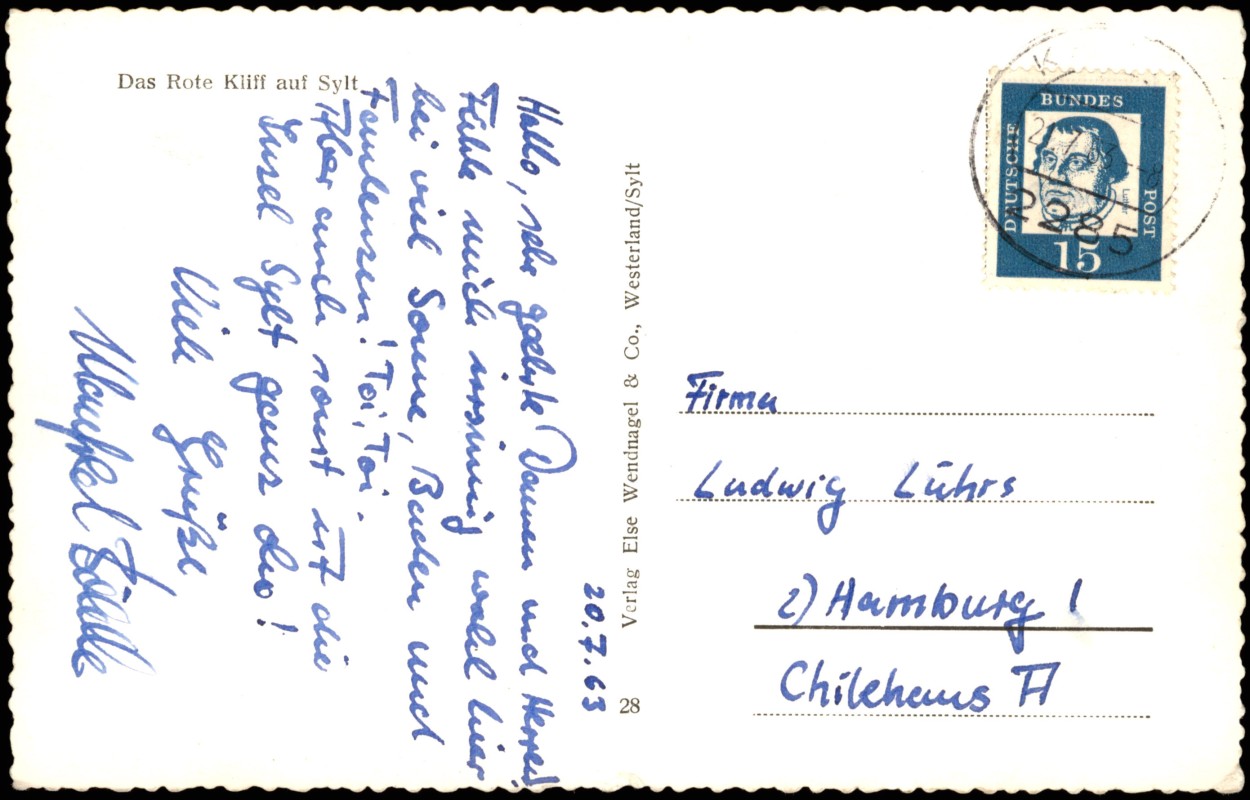 Das Rote Kliff auf Sylt
20.7.63
Hallo, sehr geehrte Damen und Herren!
Fühle mich irrsinnig wohl hier
bei viel Sonne, Baden und
Faulenzen! Toi, Toi.
Aber auch sonst ist die
Insel Sylt ganz dufte!
Viele
Grüße
Manfred
Verlag Else Wendnagel & Co., Westerland/Sylt
28
DEUTSCHE
BUNDES
POST
Luther
15
21.7.63
2285
Firma
Ludwig Lührs
2) Hamburg 1
Chilehaus A